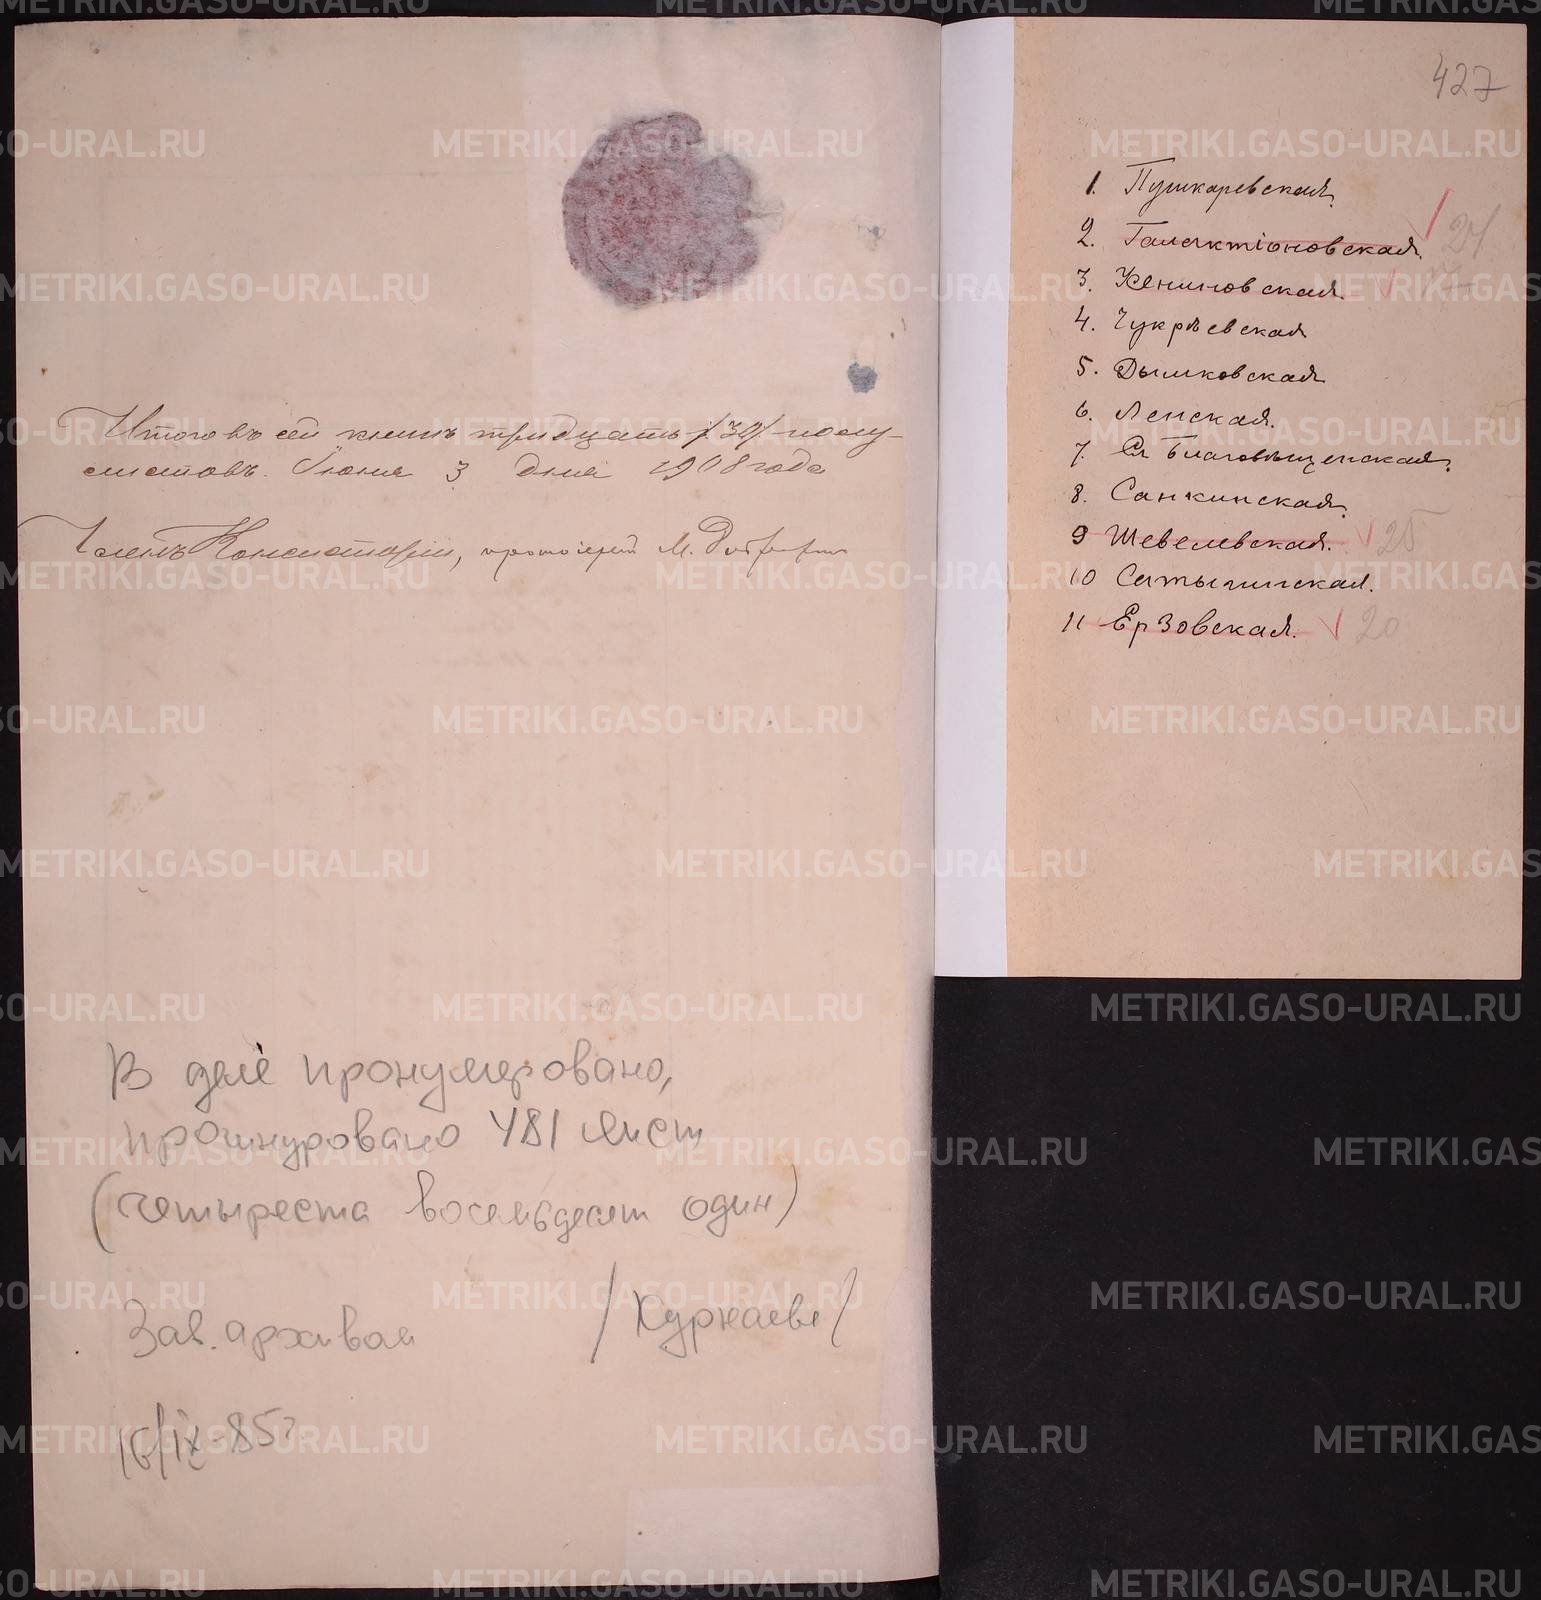 Итого въ сей книгѣ тридцать /30/ полу-
листовъ. Июня 3 дня 1908 года
Членъ Консисторіи, протоіерей М.
В деле пронумеровано,
прошнуровано 481 лист
(четыреста восемьдесят один)
Зав. архивом
16/IX-85г.
427
1. Пушкаревская.
2. Галактіоновская. 24
3. Кениновская.
4. Чукрѣевская
5. Дымковская
6. Ленская.
7. Благовѣщенская.
8. Санкинская.
9 Шевелевская. 25
10 Сатыгинская.
11 Ерзовская. 20
METRIKI.GASO-URAL.RU